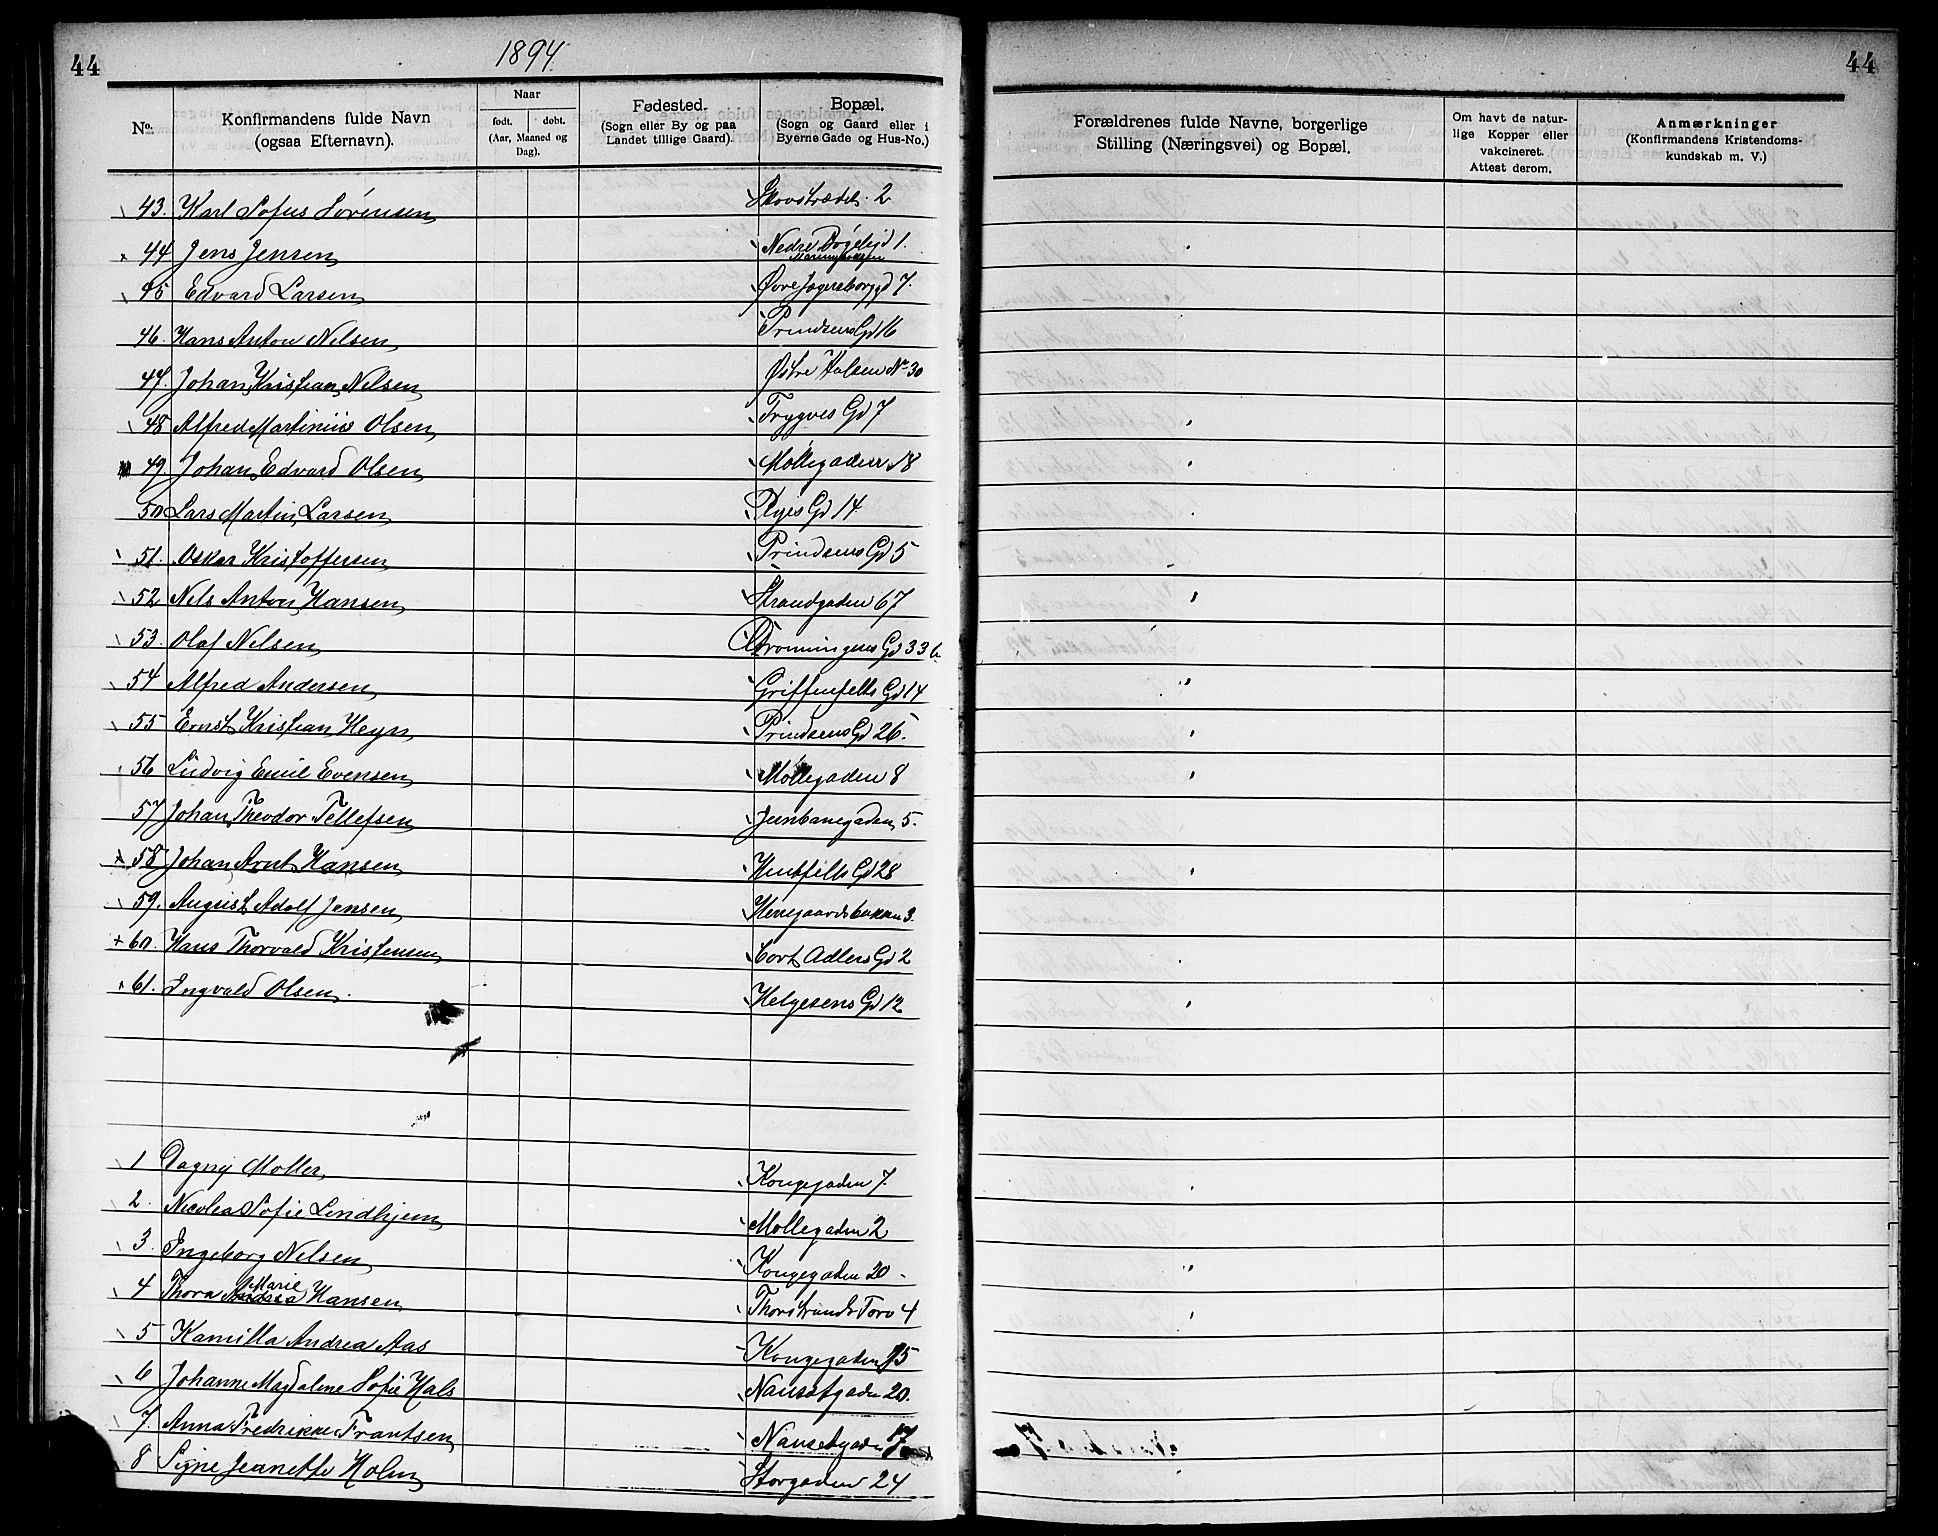 44
1894.
44
No.
Konfirmandens fulde Navn
(ogsaa Efternavn).
Naar
født. døbt.
(Aar, Maaned og
Dag).
Fødested.
(Sogn eller By og paa
Landet tillige Gaard).
Bopæl.
(Sogn og Gaard eller i
Byerne Gade og Hus-No.)
Forældrenes fulde Navne, borgerlige
Stilling (Næringsvei) og Bopæl.
Om havt de natur-
lige Kopper eller
vakcineret.
Attest derom.
Anmærkninger
(Konfirmandens Kristendoms-
kundskab m. V.)
43. Karl Sofus Sørensen Skovstrædet. 2
44 Jens Jensen Nedre Bøgeligd 1.
45 Edvard Larsen Øvre Jegersborggd 7.
46. Hans Anton Nelsen Prindsens Gd 16
47. Johan Kristian Nelsen Østre Halsen No 30
48 Alfred Martinius Olsen Trygves Gd 7
49. Johan Edvard Olsen Møllegaden 18
50 Lars Martin Larsen Ryes Gd 14
51. Oskar Kristoffersen Prindsens Gd 5
52 Nels Anton Hansen Strandgaden 67
53. Olaf Nelsen Dronningens Gd 33 b
54 Alfred Andersen Griffenfelts Gd 14
55 Ernst Kristian Heyn Prindsens Gd 26.
56 Ludvig Emil Evensen Møllegaden 8
57 Johan Theodor Tellefsen Jernbanegaden 5.
58 Johan Arnt Hansen Huitfelts Gd 28
59. August Adolf Jensen Herregaardsbakken 3.
60. Hans Thorvald Kristensen Cort Adlers Gd 2
61. Ingvald Olsen. Helgesens Gd 12
1 Dagny Møller Kongegaden 7.
2. Nicolea Sofie Lindhjem Møllegaden 2
3. Ingeborg Nelsen Kongegaden 20
4 Thora Marie Hansen Thorstrands Torv 4
5 Kamilla Andrea Aas Kongegaden 15
6 Johanne Magdalene Sofie Hals Nansetgaden 20.
7. Anna Fredrikke Frantsen Nansetgaden 17
8 Signe Jeanette Holm Storgaden 24